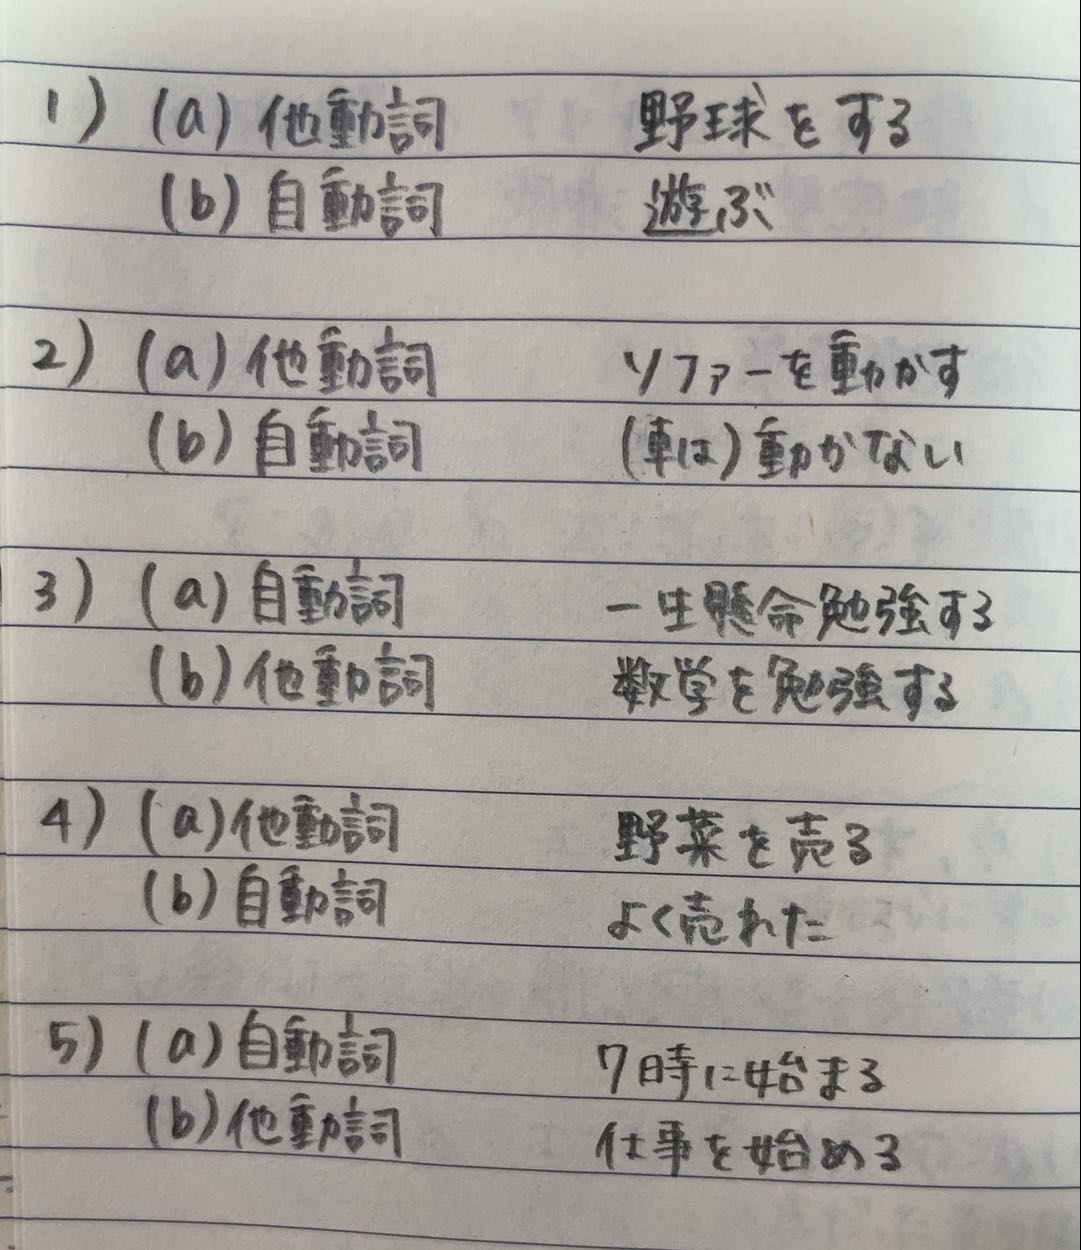 1) (a) 他動詞 野球をする
(b) 自動詞 遊ぶ
2) (a) 他動詞 ソファーを動かす
(b) 自動詞 (車は) 動かない
3) (a) 自動詞 一生懸命勉強する
(b) 他動詞 数学を勉強する
4) (a) 他動詞 野菜を売る
(b) 自動詞 よく売れた
5) (a) 自動詞 7時に始まる
(b) 他動詞 仕事を始める